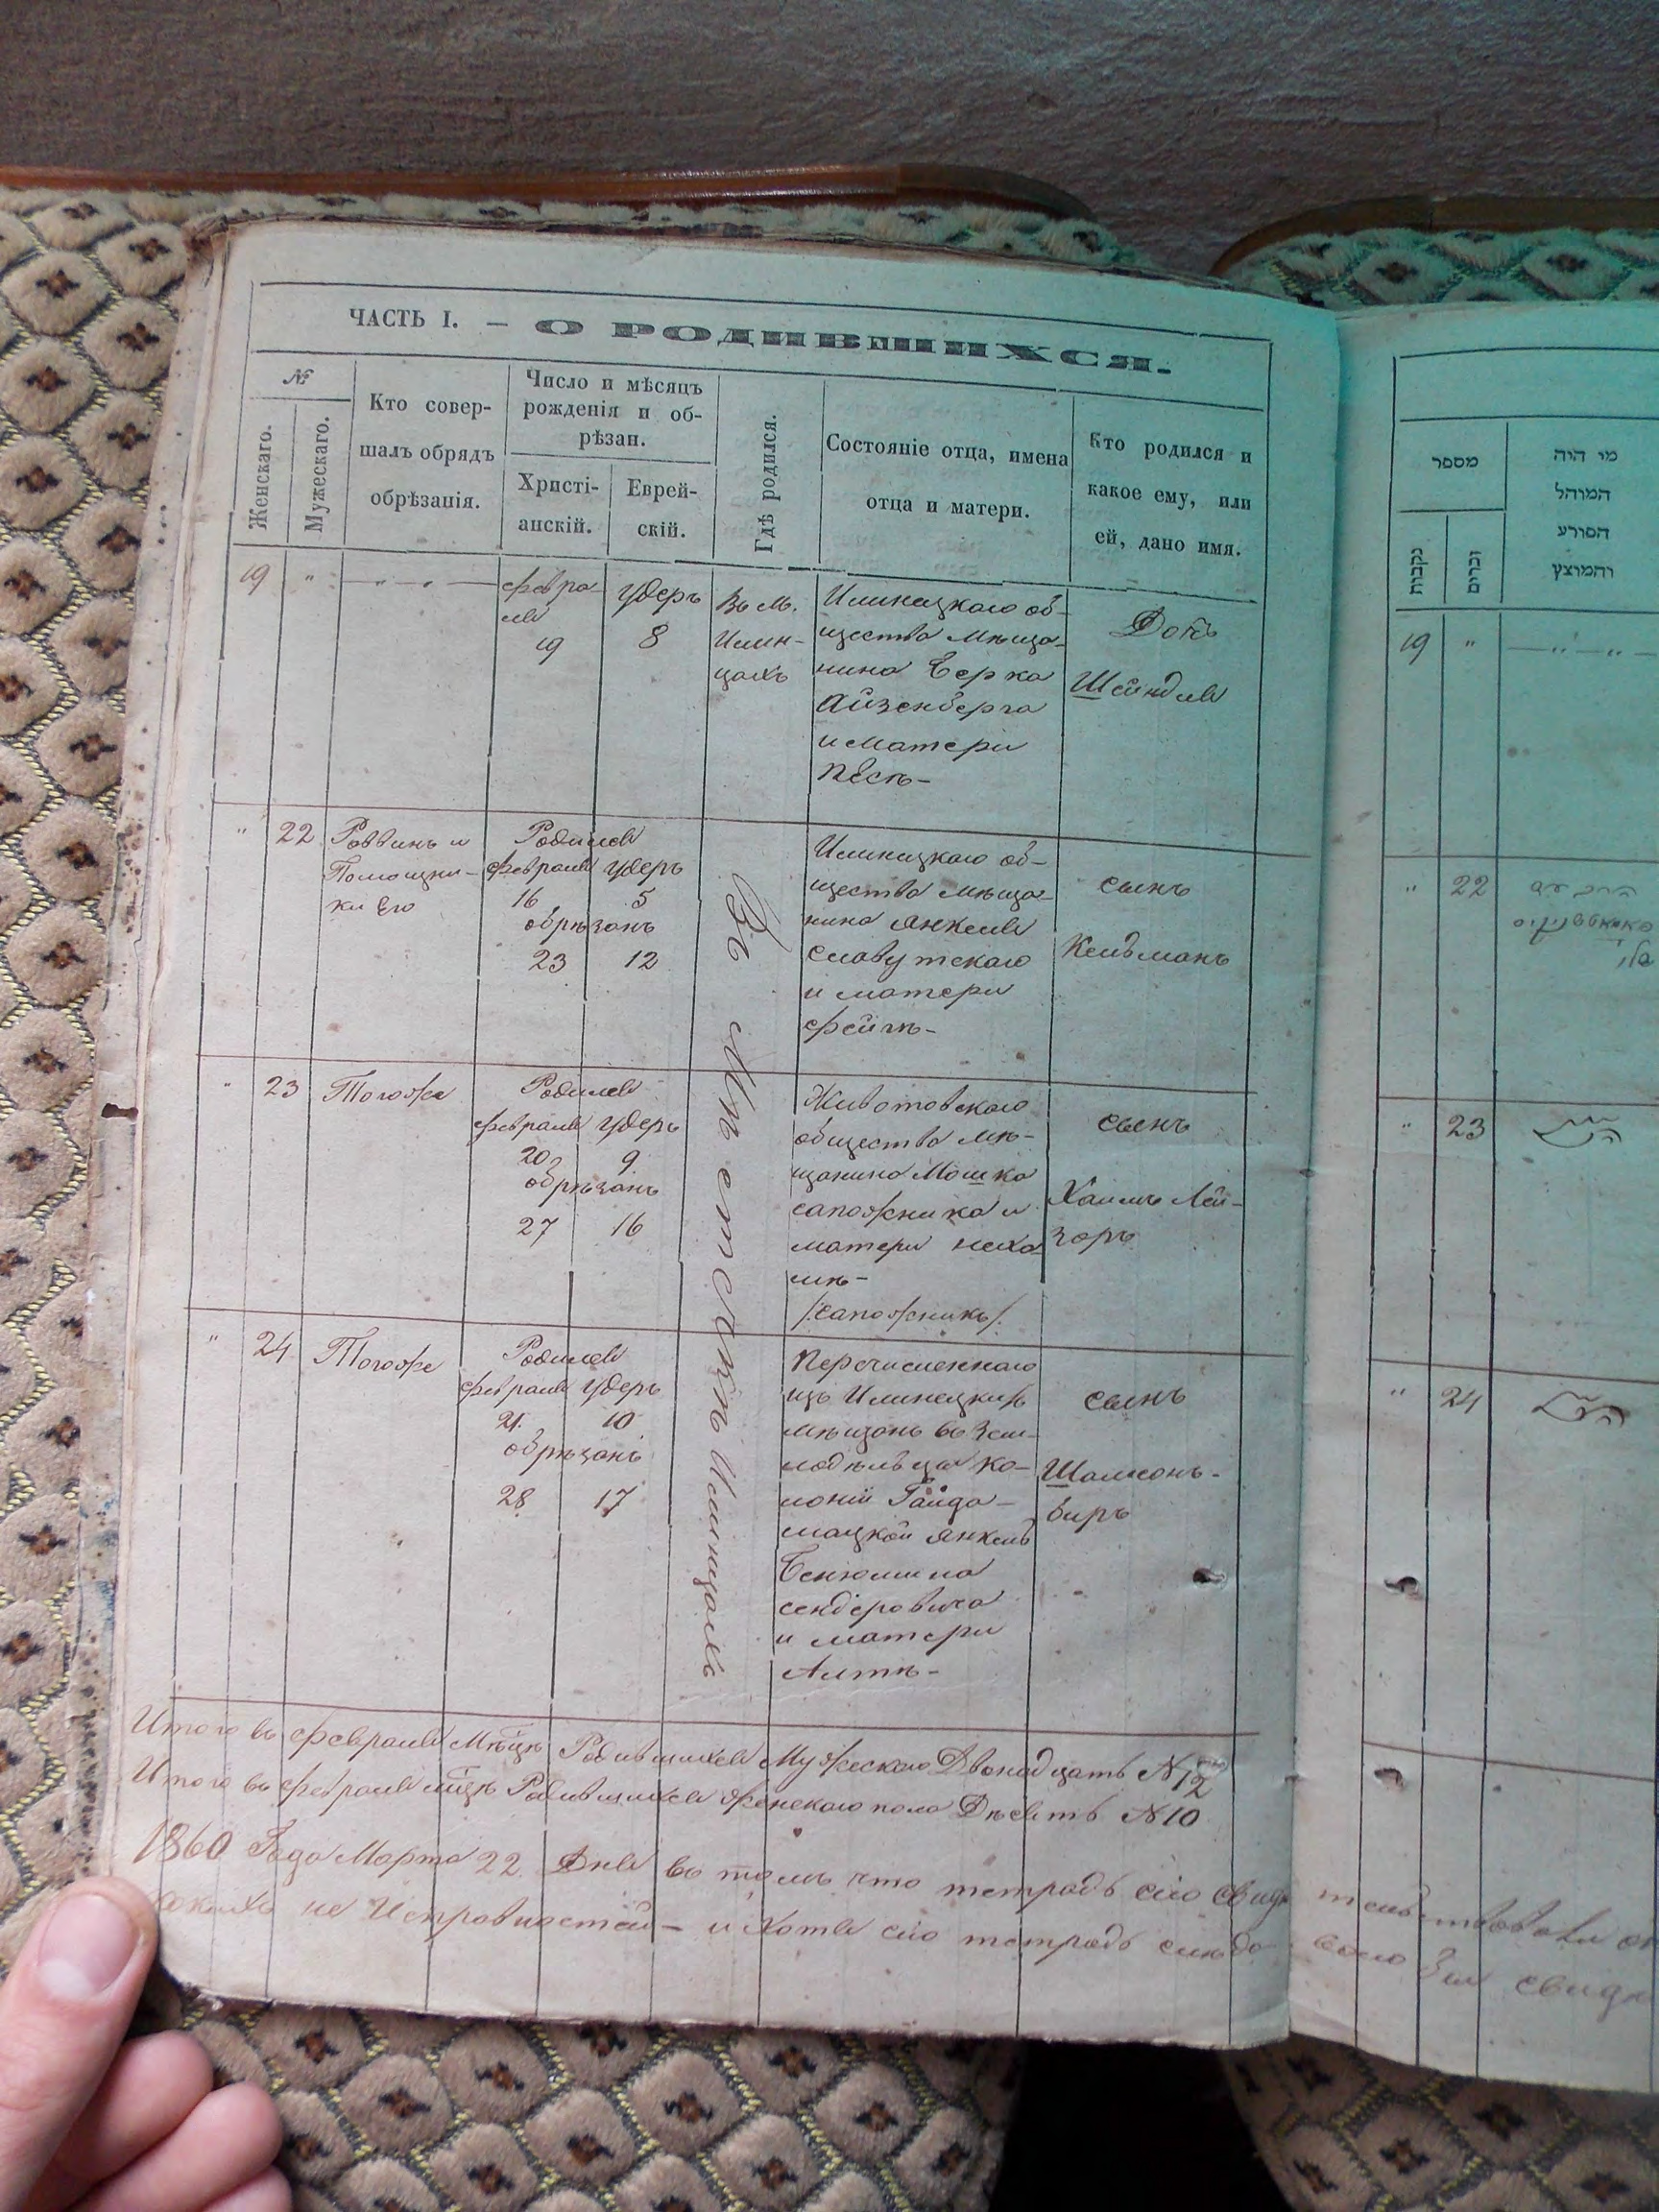 ЧАСТЬ I. — О РОДИВШИХСЯ.
№
Женскаго.
Мужескаго.
Кто совер-
шалъ обрядъ
обрѣзанія.
Число и мѣсяцъ
рожденія и об-
рѣзан.
Христі-
анскій.
Еврей-
скій.
Гдѣ родился.
Состояніе отца, имена
отца и матери.
Кто родился и
какое ему, или
ей, дано имя.
19 " — " — " —
февра-
ля
19
Удеръ
8
Въ м.
Илин-
цахъ
Илинецкаго об-
щества мѣща-
нина Берка
Айзенберга
и матери
Песѣ-
Дочь
Шейндля
" 22
Раввинъ и
Помощни-
ки Его
Родился
февраля Удеръ
16 5
обрѣзанъ
23 12
Въ Мѣстечкѣ Илинцахъ
Илинецкаго об-
щества мѣща-
нина Янкеля
Славутскаго
и матери
Фейгѣ-
сынъ
Кельманъ
" 23
Тогоже
Родился
февраля Удеръ
20 9
обрѣзанъ
27 16
Животовскаго
общества мѣ-
щанина Мошка
сапожника и
матери Неха
мѣ-
/:сапожникъ/:
сынъ
Хаимъ Лей-
зоръ
" 24
Тогоже
Родился
февраля Удеръ
21 10
обрѣзанъ
28 17
Перечисленнаго
изъ Илинецкихъ
мѣщанъ въ Зем-
ледѣльца ко-
лоніи Гайда-
мацкой Янкель
Бенюмина
Сендеровича
и матери
Алтѣ-
сынъ
Шамсонъ-
биръ
Итого въ февралѣ Мѣцѣ Родившихся Мужескаго Двонадцать N12
Итого въ февралѣ мцѣ Родившихся женскаго пола Дѣсять N10
1860 Года Марта 22 Дня въ томъ что тетрадь сію свидѣ
не Исправностей- и хотя сію тетрадь
מספר
נקבות
זכרים
מי היה
המוהל
הפורע
והמוצץ
19 " — " — " —
" 22
" 23
" 24
свидѣ